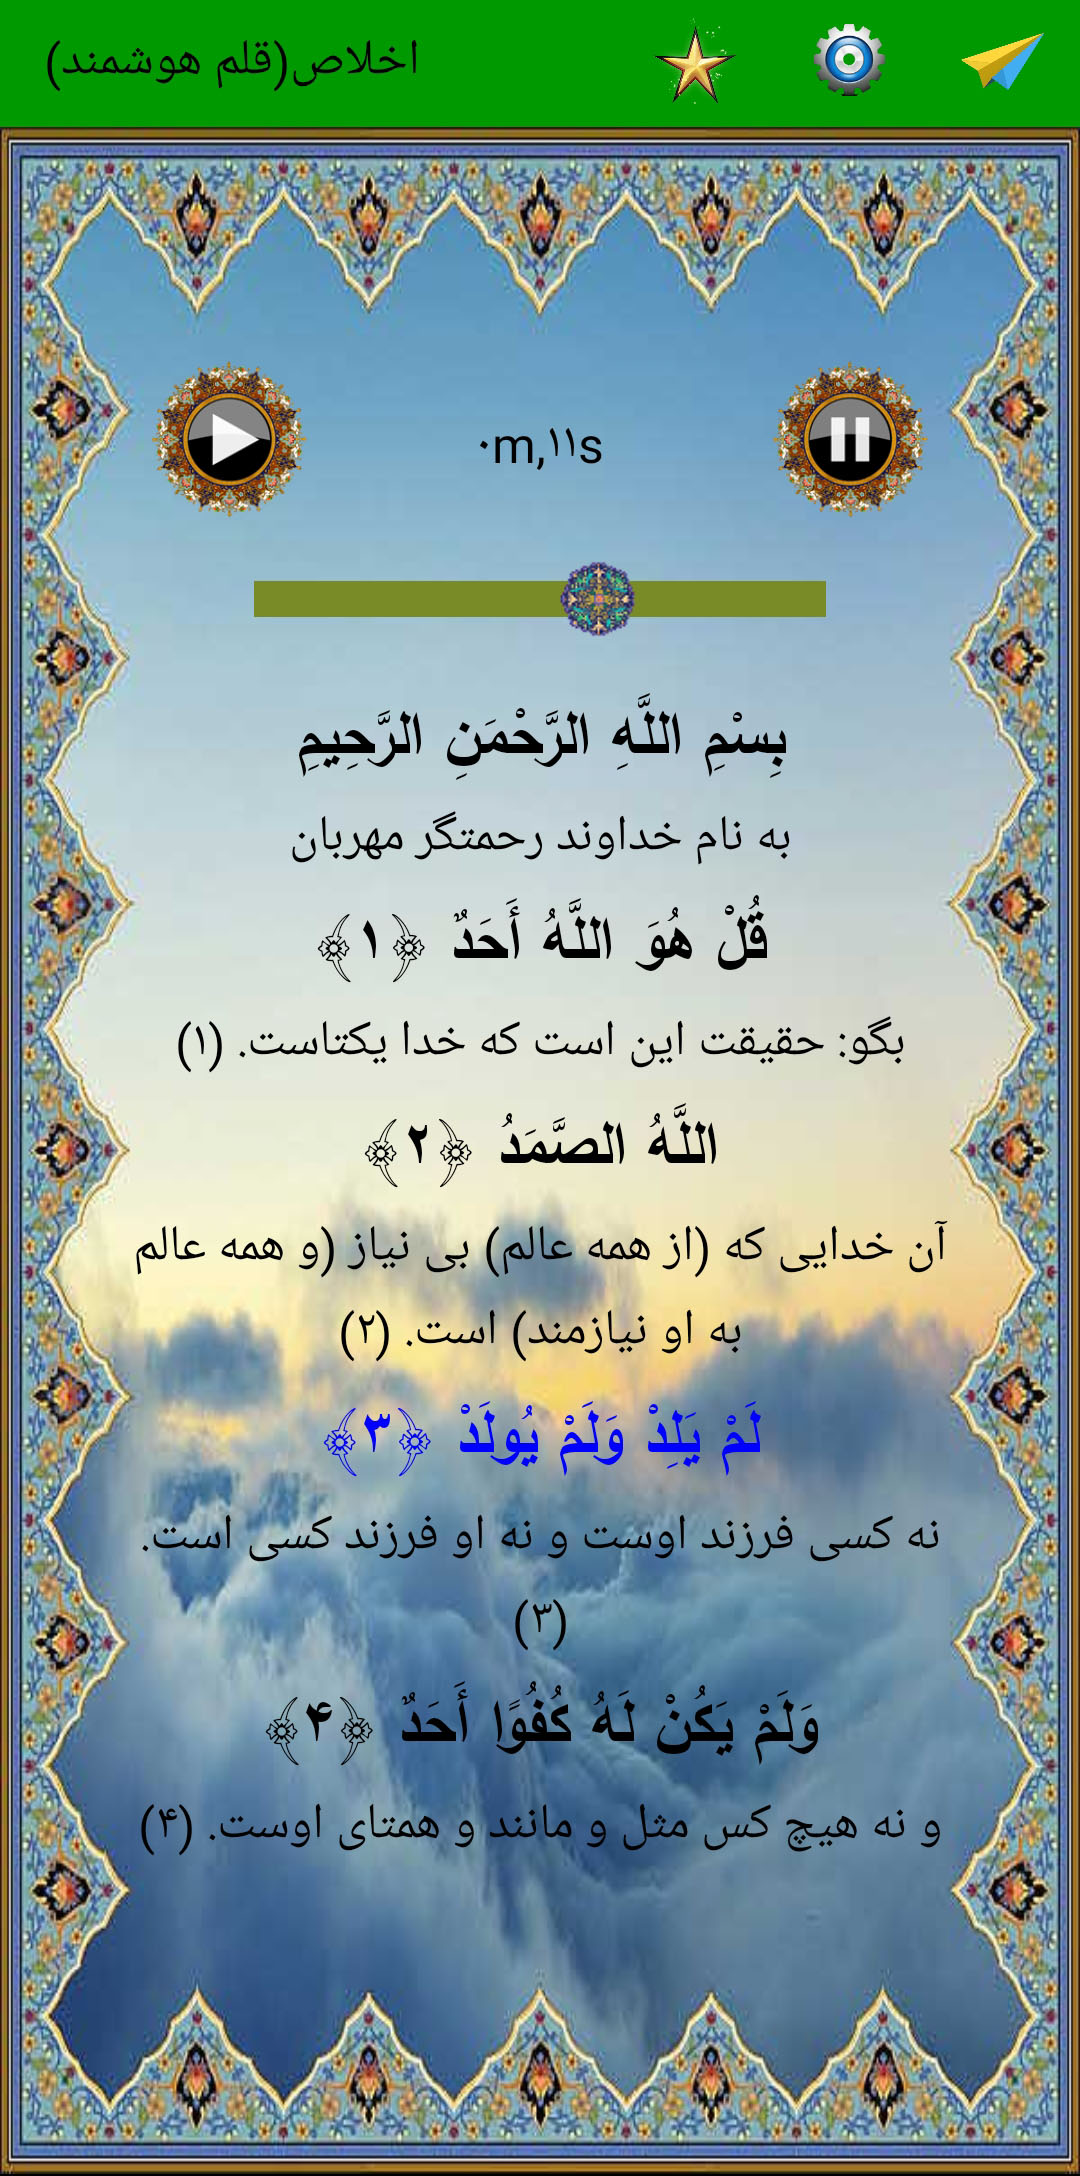 اخلاص(قلم هوشمند)
۰m,۱۱s
بِسْمِ اللَّهِ الرَّحْمَنِ الرَّحِيمِ
به نام خداوند رحمتگر مهربان
قُلْ هُوَ اللَّهُ أَحَدٌ ﴿۱﴾
بگو: حقیقت این است که خدا یکتاست. (۱)
اللَّهُ الصَّمَدُ ﴿۲﴾
آن خدایی که (از همه عالم) بی نیاز (و همه عالم
به او نیازمند) است. (۲)
لَمْ يَلِدْ وَلَمْ يُولَدْ ﴿۳﴾
نه کسی فرزند اوست و نه او فرزند کسی است.
(۳)
وَلَمْ يَكُنْ لَهُ كُفُوًا أَحَدٌ ﴿۴﴾
و نه هیچ کس مثل و مانند و همتای اوست. (۴)